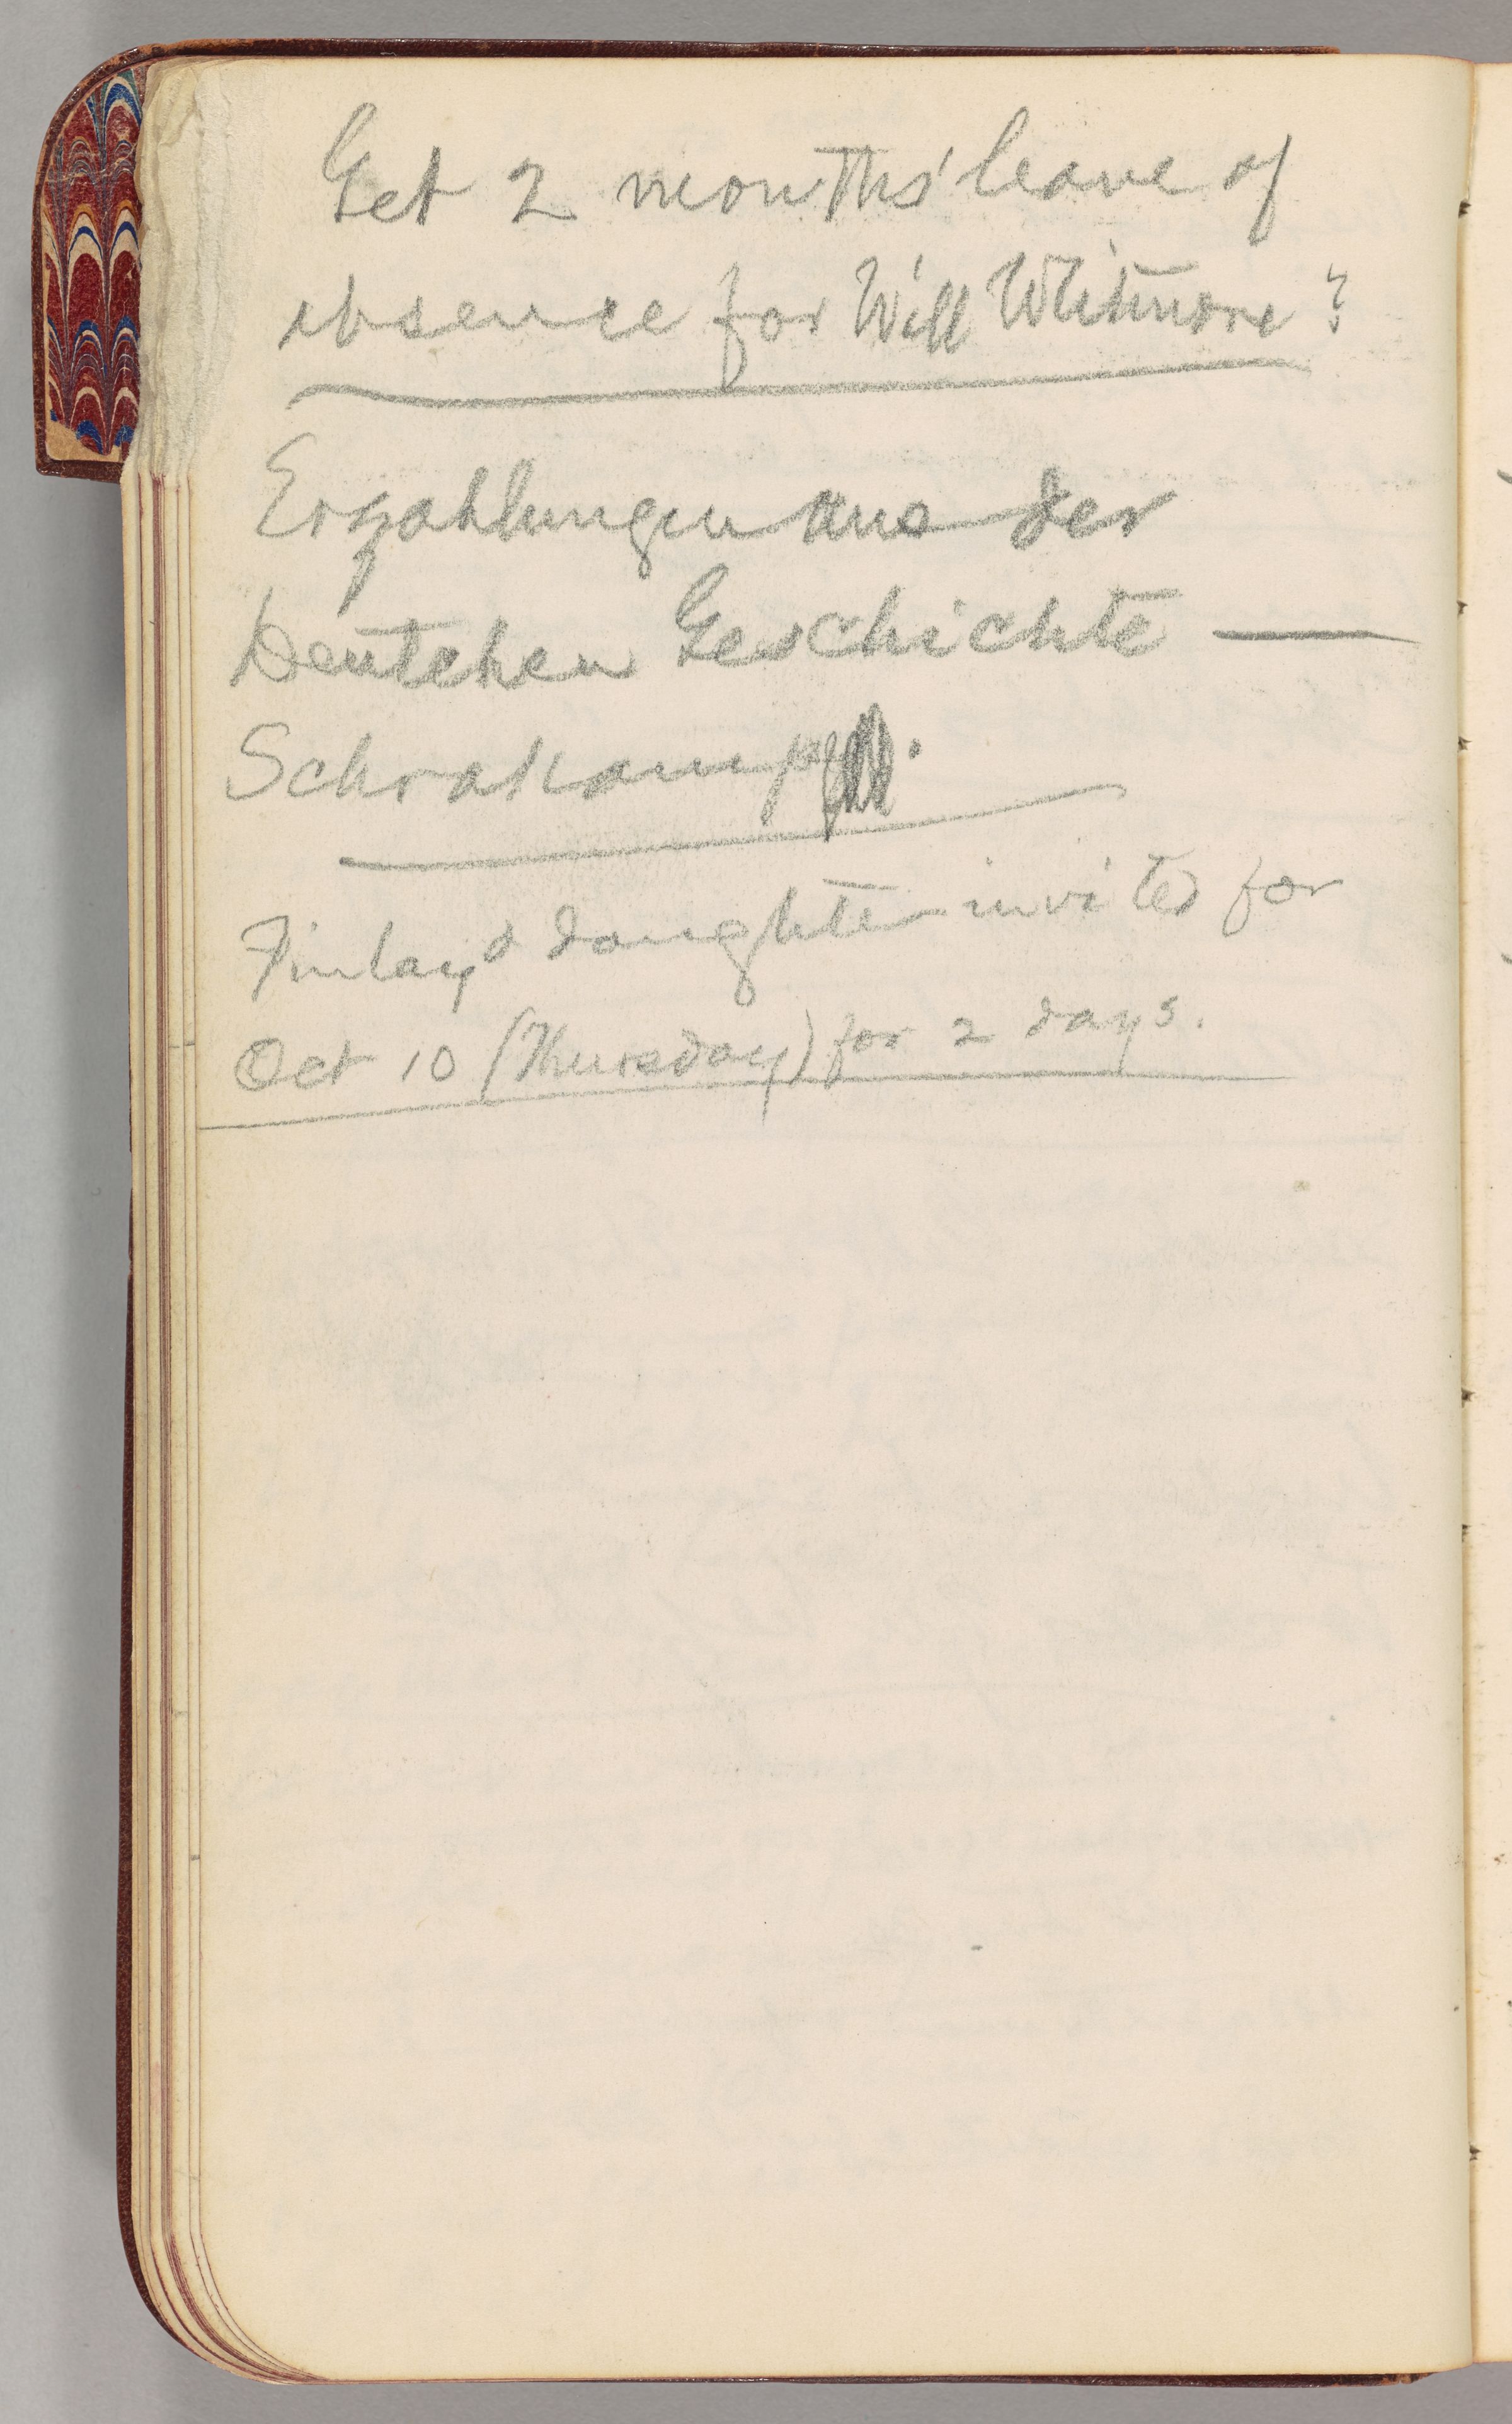 Get 2 months' leave of
absence for Will Whitmore?
Erzahlungen aus der
Deutchen Geschichte —
Schrakamp.
Finlay & daughter invited for
Oct 10 (Thursday) for 2 days.